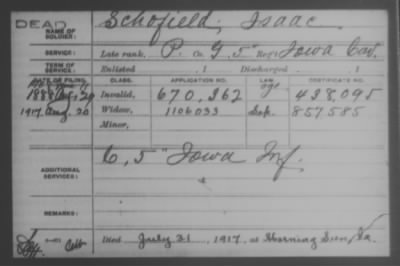 DEAD
NAME OF SOLDIER: Schofield, Isaac
SERVICE: Late rank, P. Co. G, 5" Reg't Iowa Cav.
TERM OF SERVICE: Enlisted , 1 Discharged , 1
DATE OF FILING. CLASS. APPLICATION NO. CERTIFICATE NO.
1888 Aug. Invalid, 670,262 438,095
1917 Aug. 20 Widow, 1106033 857585
Minor,
ADDITIONAL SERVICES: C, 5" Iowa Inf.
REMARKS:
Died July 31, 1917, at Morning Sun, Ia.